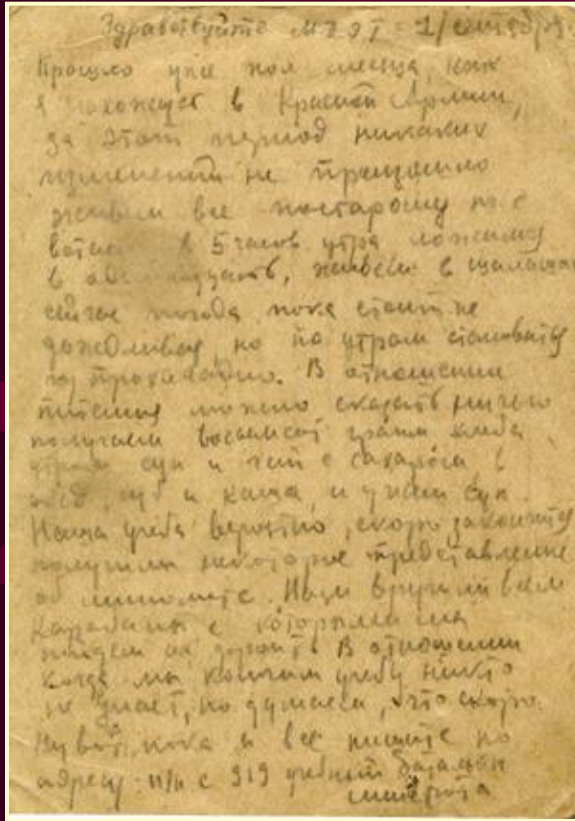 Здравствуйте 1/сентября
Прошло уже пол месяца, как
я нахожусь в Красной Армии,
за этот период никаких
изменений не
живем все постарому
в 5 часов утра ложимся
в живем в шалашах
сейчас погода пока стоит не
дождливая, но по утрам
прохладно. В отношении
питания можно сказать ничего
получаем восемьсот грамм хлеба,
утром суп и чай с сахаром, в
обед, суп и каша, и ужин суп.
Наша учеба вероятно, скоро закончится
получили некоторое представление
об миномете. Нам вручили всем
Карабины с которыми мы
В отношении
когда мы кончим учебу никто
не знает, но думаем, что скоро.
Ну вот, пока и все пишите по
адресу: п/п с 919 учебный батальон